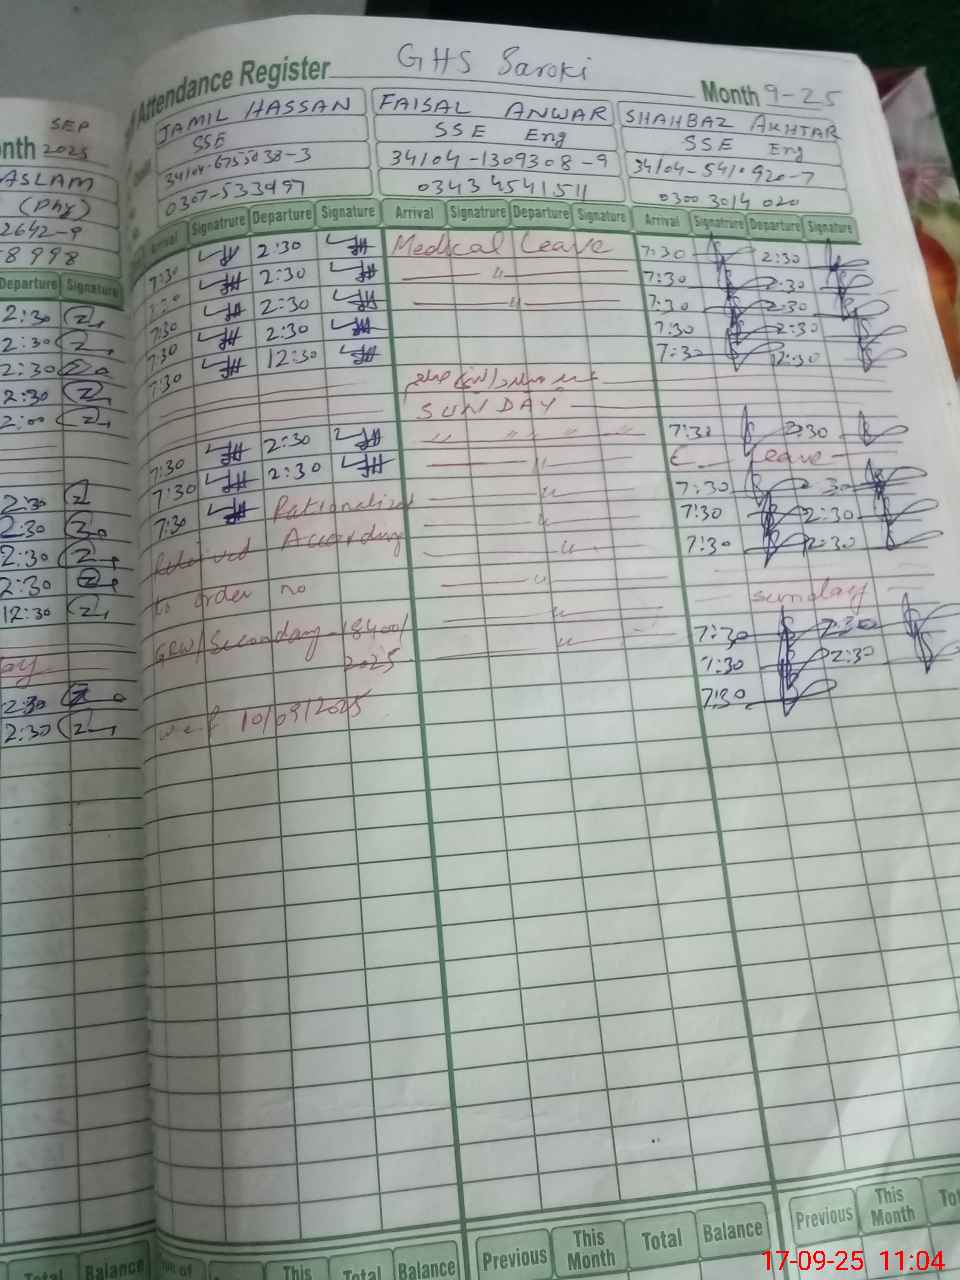 Attendance Register GHS Saroki Month 9-25
SEP
nth 2025
ASLAM
(Phy)
2642-9
8998
Departure Signature
2:30
2:30
2:30
2:30
2:00
2:30
2:30
2:30
2:30
12:30
2:30
2:30
JAMIL HASSAN
SSE
0307-533497
Arrival Signatrure Departure Signature
7:30 2:30
7:30 2:30
7:30 2:30
7:30 2:30
7:30 12:30
7:30 2:30
7:30 2:30
7:30 Rationalized
Relieved According
to order no
GRW/Secondary-18400/
2025
w.e.f 10/09/2025
FAISAL ANWAR
SSE Eng
34104-1309308-9
0343 4541511
Arrival Signatrure Departure Signature
Medical Leave
"
"
SUNDAY
" " " " "
"
"
"
"
"
"
"
SHAHBAZ AKHTAR
SSE Eng
34104-5410920-7
0300 3014 020
Arrival Signatrure Departure Signature
7:30 2:30
7:30 2:30
7:30 2:30
7:30 2:30
7:30 12:30
7:30 2:30
Leave
7:30 2:30
7:30 2:30
7:30 2:30
sunday
7:30 2:30
7:30 2:30
7:30
Total Balance
This Total Balance
Previous This Month Total Balance
Previous This Month
17-09-25 11:04